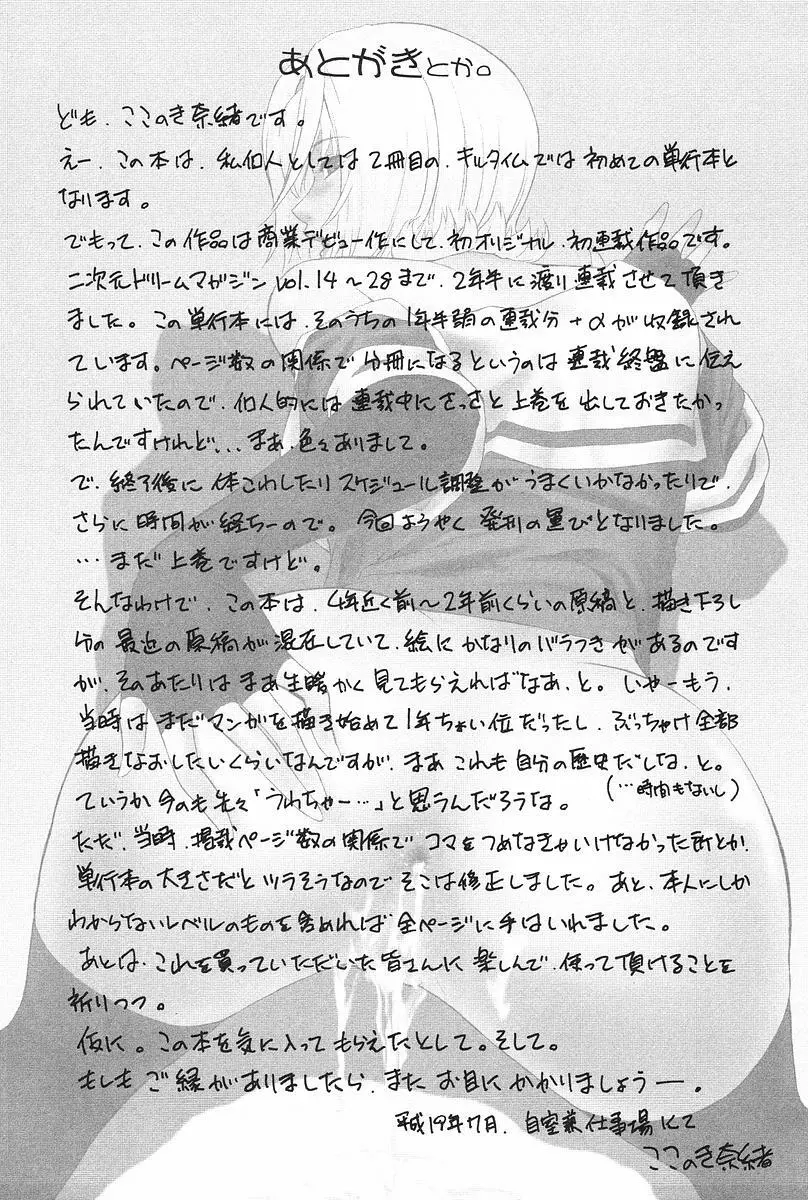 あとがきとか。
ども、ここのき奈緒です。
えー、この本は、私個人としては2冊目の、キルタイムでは初めての単行本と
なります。
でもって、この作品は商業デビュー作にして、初オリジナル、初連載作品です。
二次元ドリームマガジン vol.14～28まで、2年半に渡り連載させて頂き
ました。この単行本には、そのうちの1年半弱の連載分+αが収録され
ています。ページ数の関係で分冊になるというのは連載終盤に伝え
られていたので、個人的には連載中にさっさと上巻を出しておきたかっ
たんですけれど...まあ、色々ありまして。
で、終了後に体こわしたりスケジュール調整がうまくいかなかったりで、
さらに時間が経ちーので。今回ようやく発刊の運びとなりました。
…まだ上巻ですけど。
そんなわけで、この本は、4年近く前～2年前くらいの原稿と、描き下ろし
分の最近の原稿が混在していて、絵にかなりのバラつきがあるのです
が、そのあたりはまあ生暖かく見てもらえればなあ、と。いやーもう、
当時はまだマンガを描き始めて1年ちょい位だったし、ぶっちゃけ全部
描きなおしたいくらいなんですが、まあこれも自分の歴史だしな、と。
(…時間もないし)
ていうか今のも先々「うわちゃー…」と思うんだろうな。
ただ、当時、掲載ページ数の関係でコマをつめなきゃいけなかった所とか、
単行本の大きさだとツラそうなのでそこは修正しました。あと、本人にしか
わからないレベルのものを含めれば全ページに手はいれました。
あとは、これを買っていただいた皆さんに楽しんで、使って頂けることを
祈りつつ。
仮に。この本を気に入ってもらえたとして。そして。
もしもご縁がありましたら、またお目にかかりましょうー。
平成19年7月、自室兼仕事場にて
ここのき奈緒